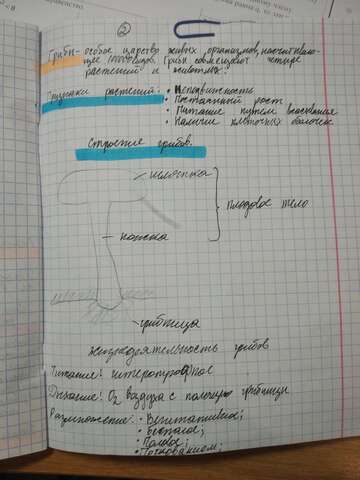 2
Грибы - особое царство живых организмов, насчитываю-
щее 100000 видов. Грибы совмещают
растений и животных.
Признаки растений: • Неподвижность
• Постоянный рост
• Питание путём всасывания
• Наличие клеточных оболочек
Строение грибов.
шляпка
плодовое тело
ножка
грибница
жизнедеятельность грибов
Питание: гетеротрофное
Дыхание: О2 воздуха с помощью грибницы
Размножение: • Вегетативное;
• Бесполое;
• Половое;
• Почкованием;